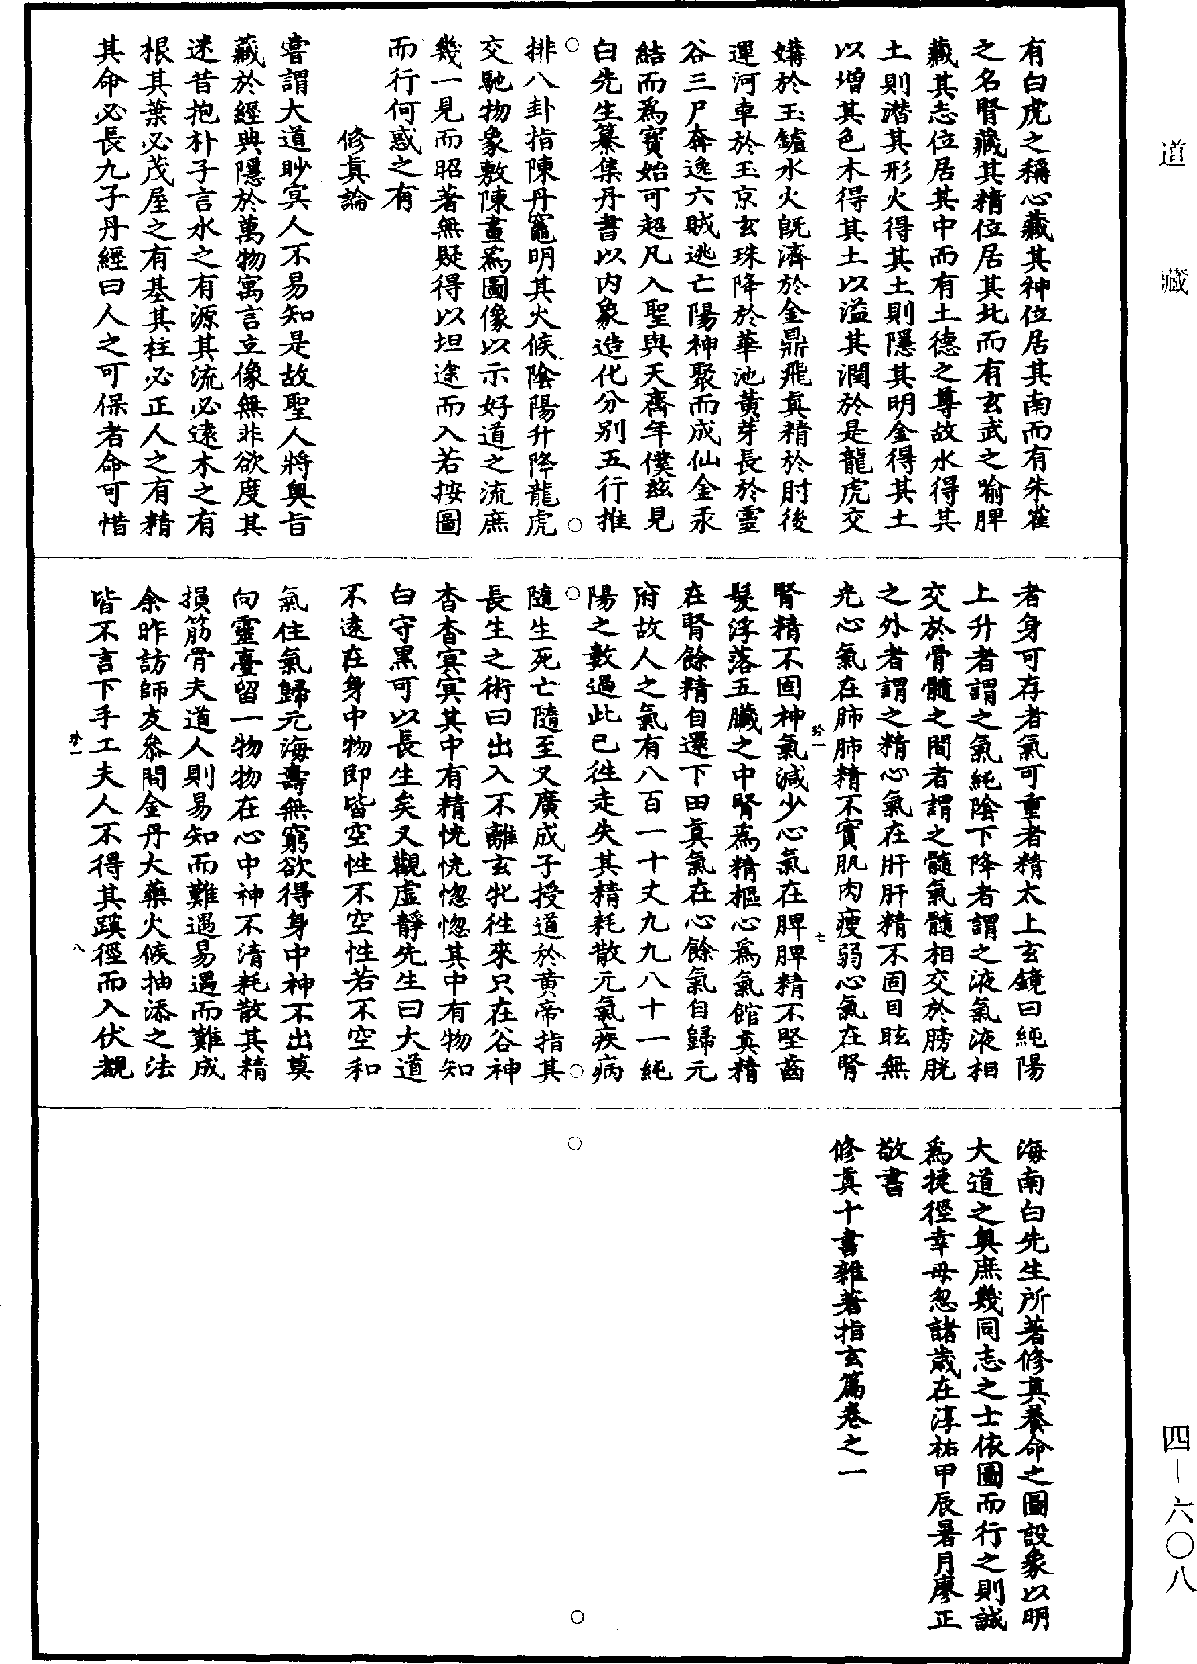 道藏
有白虎之稱心藏其神位居其南而有朱雀
之名腎藏其精位居其北而有玄武之喻脾
藏其志位居其中而有土德之尊故水得其
土則潛其形火得其土則隱其明金得其土
以增其色木得其土以溢其潤於是龍虎交
媾於玉鑪水火既濟於金鼎飛真精於肘後
運河車於玉京玄珠降於華池黃芽長於靈
谷三尸奔逸六賊逃亡陽神聚而成仙金汞
結而為寶始可超凡入聖與天齊年僕兹見
白先生纂集丹書以內象造化分别五行推
排八卦指陳丹竈明其火候陰陽升降龍虎
交馳物象敷陳畫為圖像以示好道之流庶
幾一見而昭著無疑得以坦途而入若按圖
而行何惑之有
修真論
嘗謂大道眇冥人不易知是故聖人將奧旨
藏於經典隱於萬物寓言立像無非欲度其
迷昔抱朴子言水之有源其流必遠木之有
根其葉必茂屋之有基其柱必正人之有精
其命必長九子丹經曰人之可保者命可惜
者身可存者氣可重者精太上玄鏡曰純陽
上升者謂之氣純陰下降者謂之液氣液相
交於骨髓之間者謂之髓氣髓相交於膀胱
之外者謂之精心氣在肝肝精不固目眩無
光心氣在肺肺精不實肌肉瘦弱心氣在腎
腎精不固神氣減少心氣在脾脾精不堅齒
髮浮落五臟之中腎為精樞心為氣館真精
在腎餘精自還下田真氣在心餘氣自歸元
府故人之氣有八百一十丈九九八十一純
陽之數過此已徃走失其精耗散元氣疾病
隨生死亡隨至又廣成子授道於黃帝指其
長生之術曰出入不離玄牝徃來只在谷神
杳杳冥冥其中有精恍恍惚惚其中有物知
白守黑可以長生矣又觀虛靜先生曰大道
不遠在身中物即皆空性不空性若不空和
氣住氣歸元海壽無窮欲得身中神不出莫
向靈臺留一物物在心中神不清耗散其精
損筋骨夫道人則易知而難遇易遇而難成
余昨訪師友參問金丹大藥火候抽添之法
皆不言下手工夫人不得其蹊徑而入伏覩
海南白先生所著修真養命之圖設象以明
大道之奧庶幾同志之士依圖而行之則誠
為捷徑幸毋忽諸歲在淳祐甲辰暑月廖正
敬書
修真十書雜著指玄篇卷之一
四-六〇八